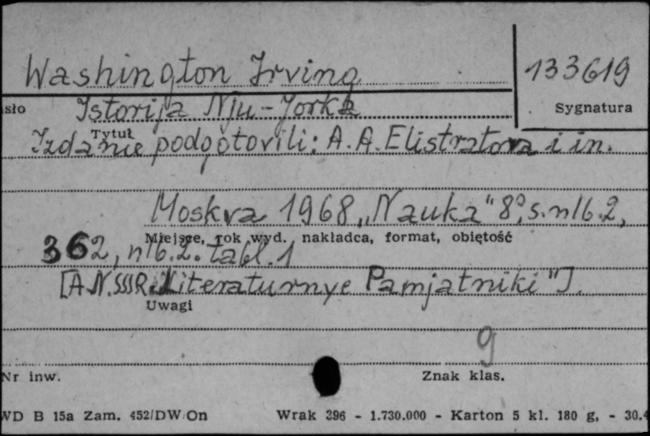 Washington Irving
133619
sło
Istorija Nju-Jorka
Sygnatura
Tytuł
Izdanie podgotovili: A. A. Elistratova i in.
Moskva 1968 „Nauka" 8°, s. nlb. 2,
Miejsce, rok wyd., nakładca, format, objętość
362, nlb. 2. tabl. 1
[A.N.SSSR. „Literaturnye Pamjatniki"].
Uwagi
9
Nr inw.
Znak klas.
WD B 15a Zam. 452/DW/On
Wrak 296 - 1.730.000 - Karton 5 kl. 180 g, - 30.4